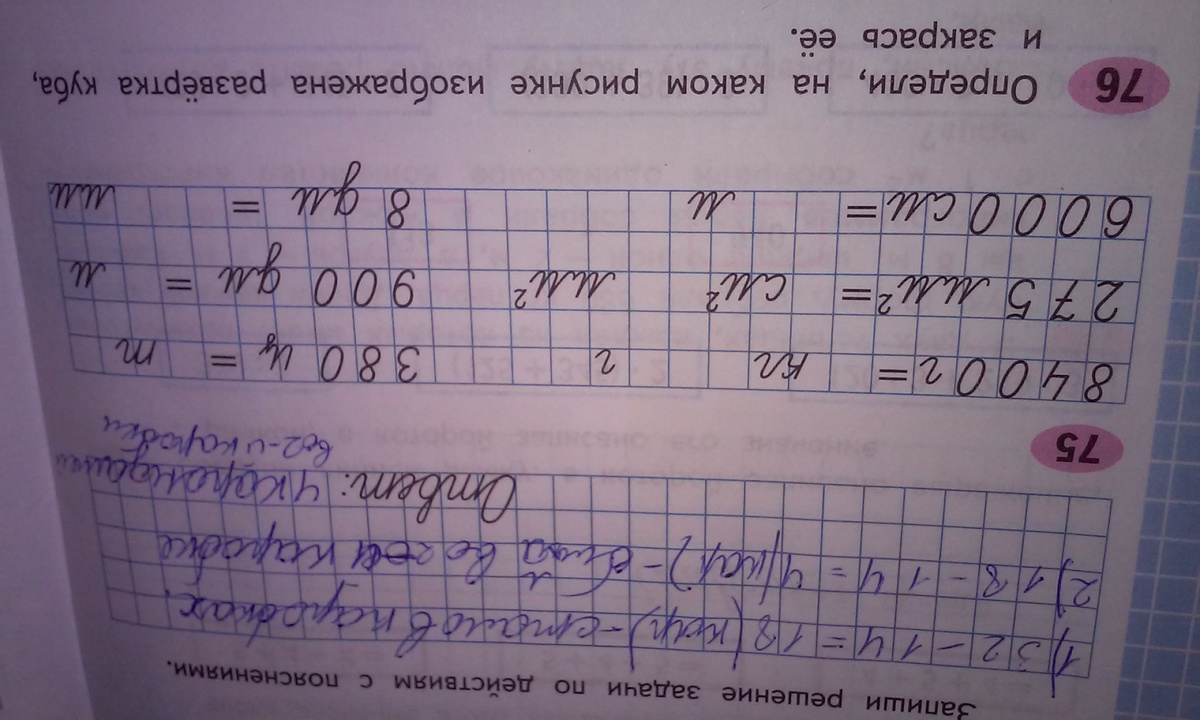 Запиши решение задачи по действиям с пояснениями.
1) 32 - 14 = 18 (кар) - стало в коробках.
2) 18 - 14 = 4 (кар) - был во 2-ой коробке
Ответ: 4 карандаша
во 2-й коробки
75
8400 г = кг г 380 ц = т
275 мм² = см² мм² 900 дм = м
6000 см = м 8 дм = мм
76 Определи, на каком рисунке изображена развёртка куба,
и закрась её.